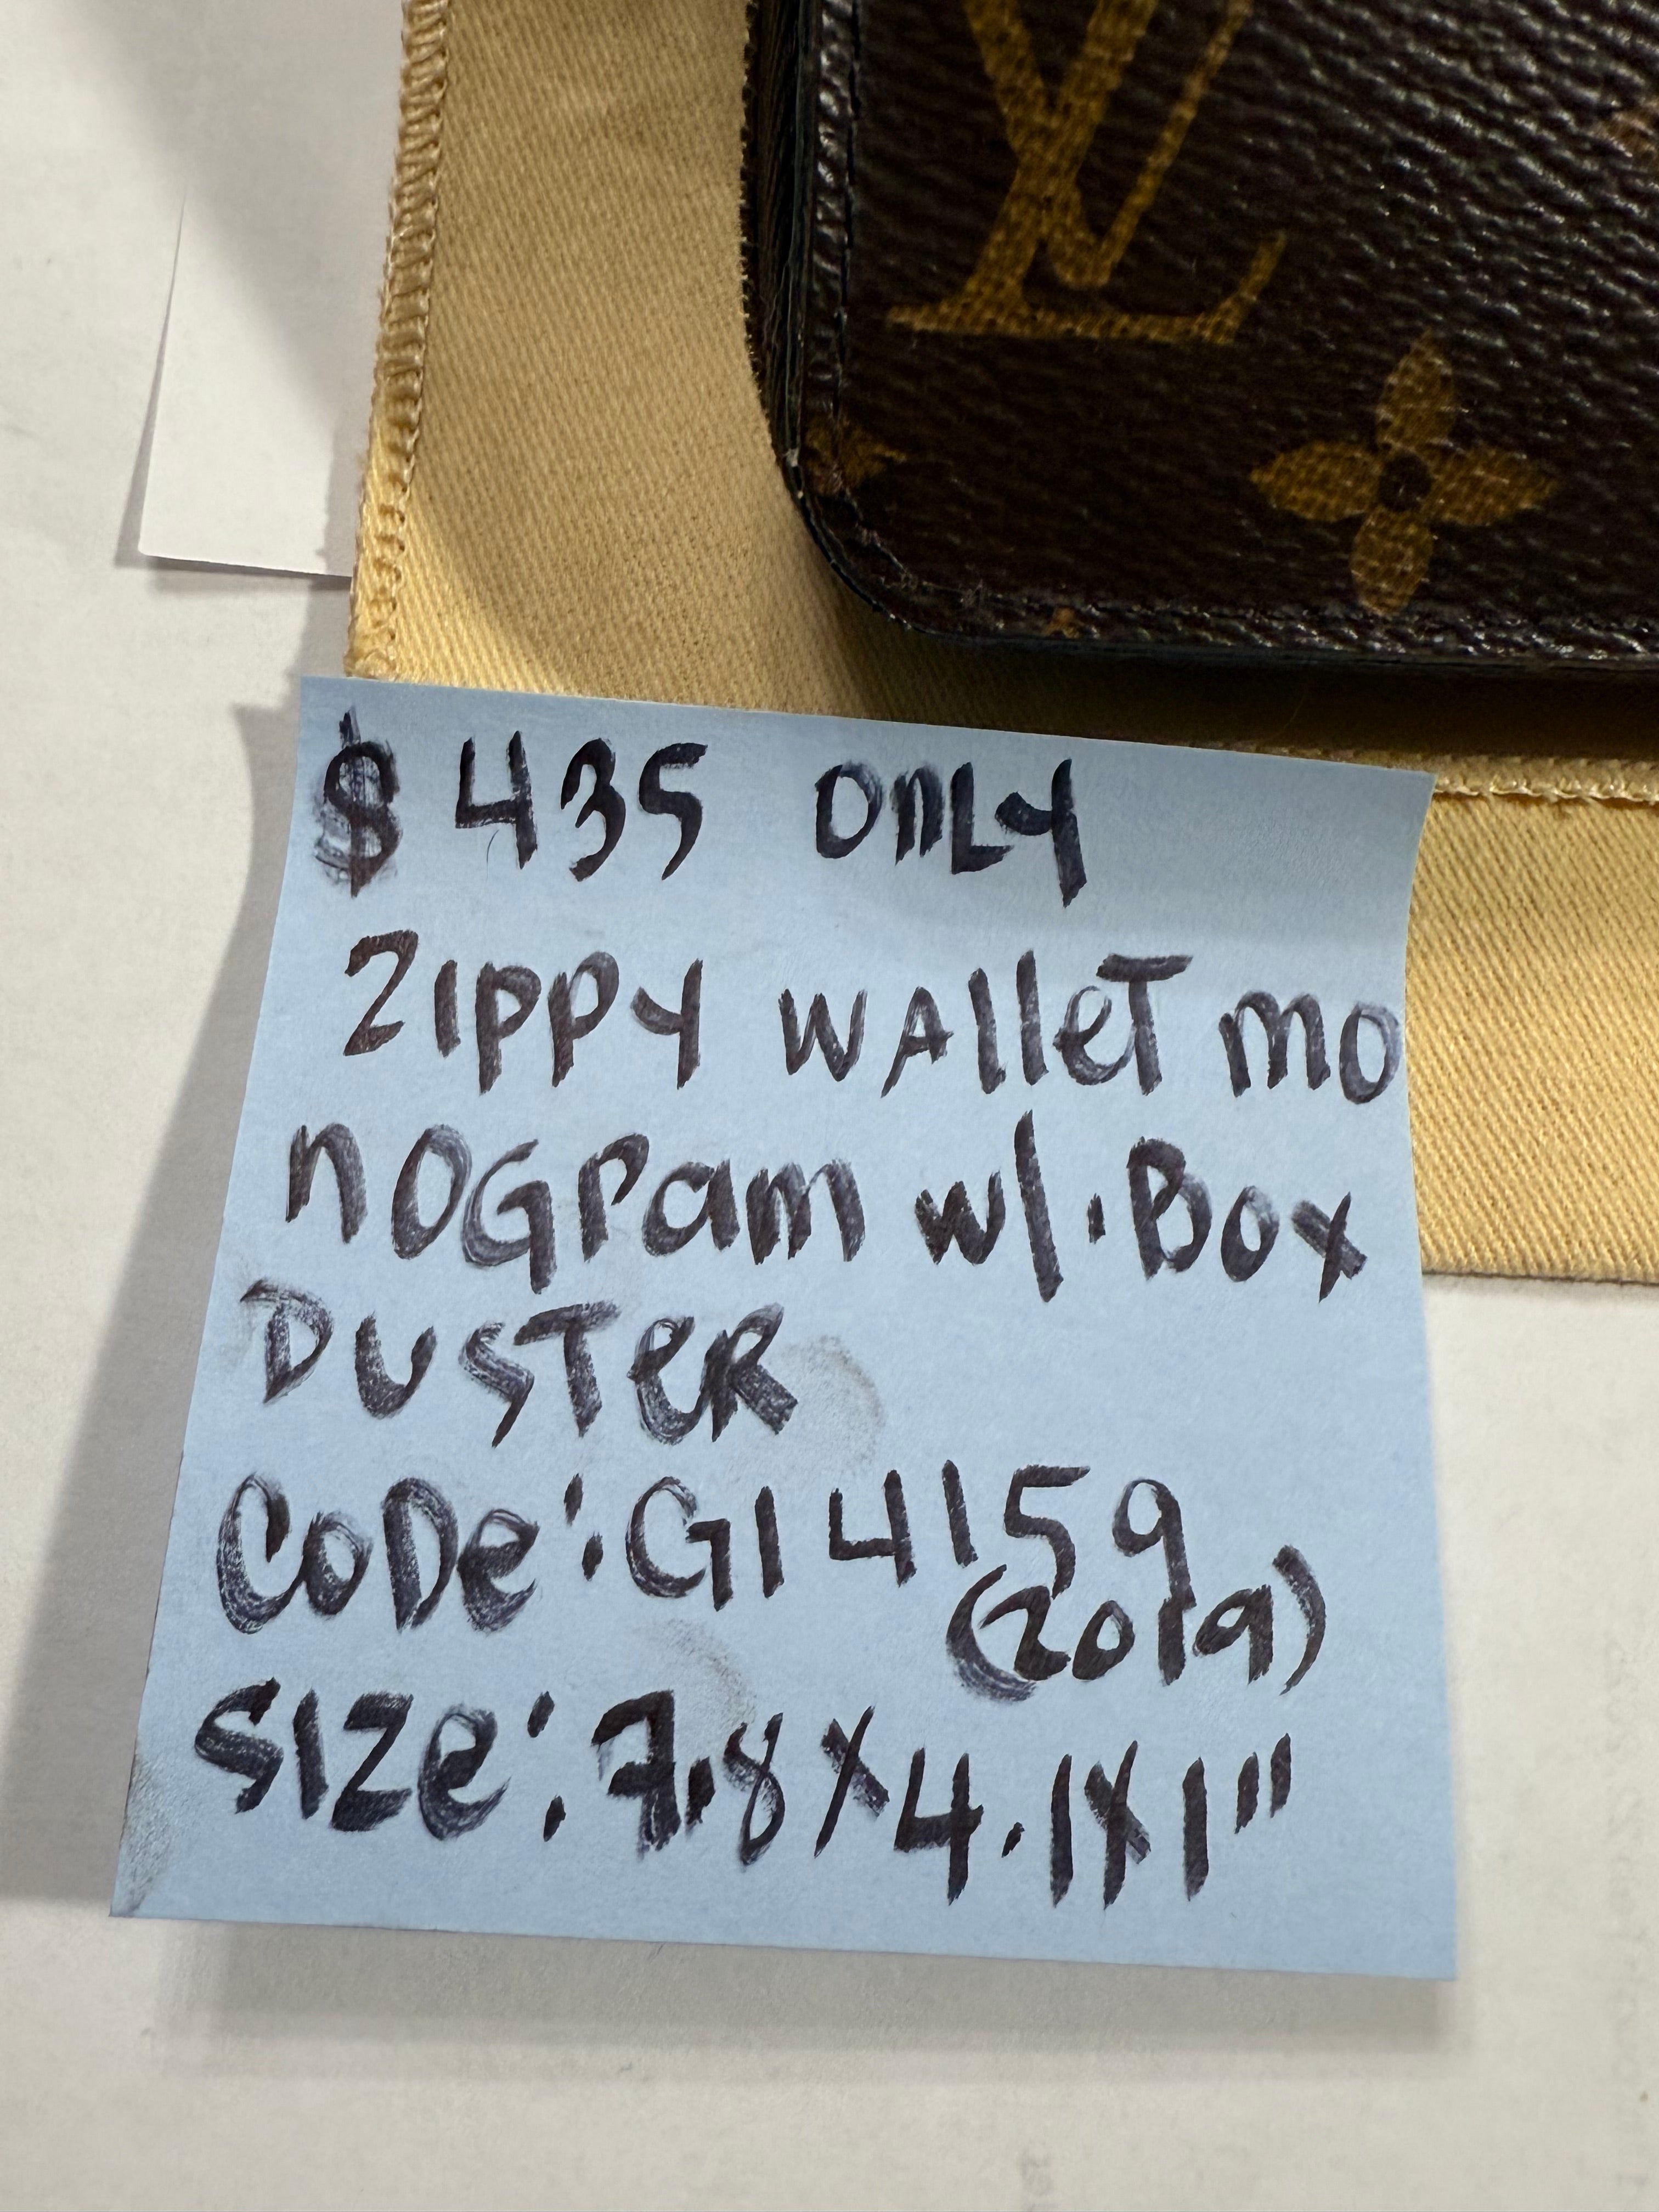 LV
$ 435 ONLY
ZIPPY WAlleT MO
NOGRam w/. Box
DUSTeR
CODe: GI4159
(2019)
SIZe: 7.8 X 4.1X1"